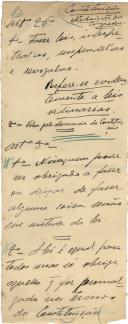 Constituição
art 26º
1º Fazer leis, interpre
tal-as, suspendel-as
e revogal-as.
Refere-se eviden
temente a leis
ordinarias.
2º Velar pela da Constitui
ção
art 3º
1º Ninguem pode
ser obrigado a fazer
ou deixar de fazer
alguma coisa senão
em virtude da lei
2º A lei é igual para
todos mas só obriga
aquella q for promul
gada nos termos
da Constituição